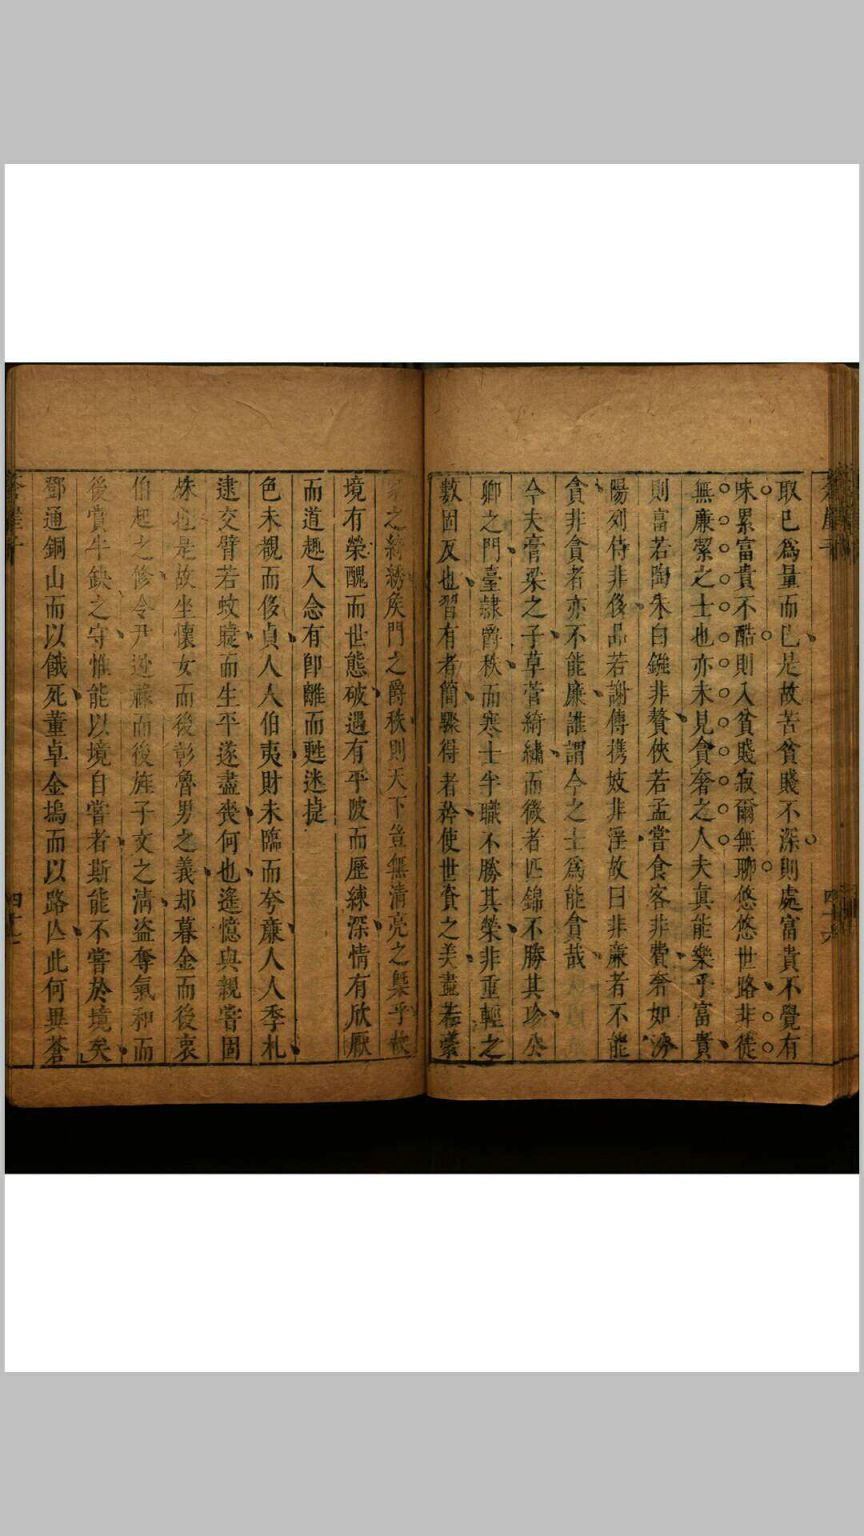 取已爲量而已是故苦貧賤不深則處富貴不覺有
味累富貴不酷則入貧賤寂爾無聊悠悠世路非徒
無廉潔之士也亦未見貪奢之人夫真能樂乎富貴
則富若陶朱白鏹非贅俠若孟嘗食客非費奢如汾
陽列侍非侈品若謝傅携妓非淫故曰非廉者不能
貪非貪者亦不能廉誰謂今之士爲能貪哉
今夫膏梁之子草菅綺繡而微者匹錦不勝其珍公
卿之門臺隷爵秩而寒士半職不勝其榮非重輕之
數固反也習有者簡驟得者矜使世食之美盡若藜
之綺綉矦門之爵秩則天下皆無清亮之槩乎故
境有榮醜而世態破遇有平陂而歷練深情有欣厭
而道趣入念有卽離而甦迷提
色未覩而侈貞人人伯夷財未臨而夸廉人人季札
逮交臂若蚊聚而生平遂盡喪何也遙憶與親嘗固
殊也是故坐懷女而後彰魯男之義却暮金而後衷
伯起之修令尹逃祿而後旌子文之淸盗奪氣和而
後賞牛缺之守惟能以境自嘗者斯能不嘗於境矣
鄧通銅山而以餓死董卓金塢而以路亾此何異蒼
蒼崖子
四十六
四十七